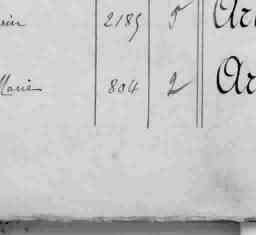 2185 5 Ar
Marie 804 2 Ar